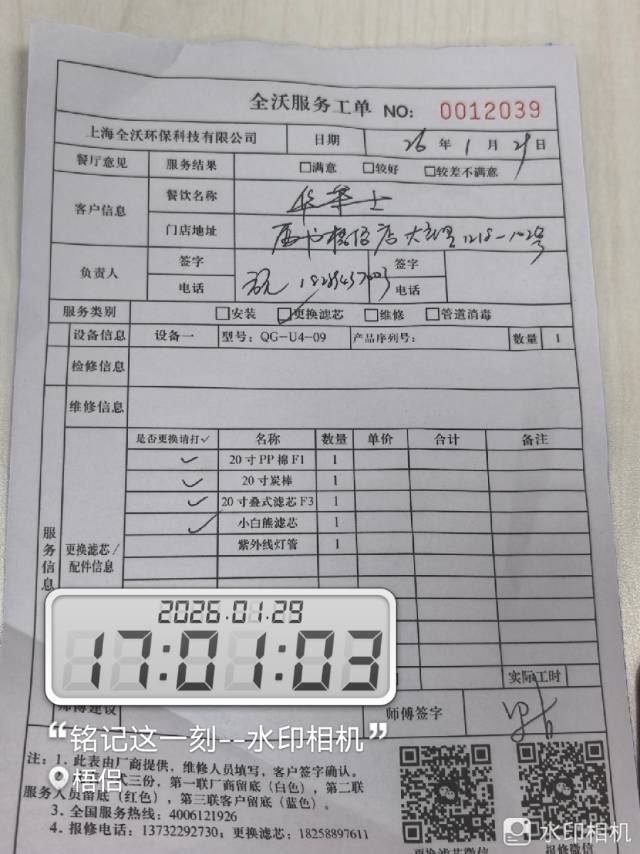 全沃服务工单 NO: 0012039
上海全沃环保科技有限公司 日期 26年1月29日
餐厅意见 服务结果 □满意 □较好 □较差不满意
客户信息 餐饮名称 华莱士
门店地址
负责人 签字 签字
电话 电话
服务类别 □安装 □更换滤芯 □维修 □管道消毒
设备信息 设备一 型号: QG-U4-09 产品序列号: 数量 1
检修信息
维修信息
服务信息
更换滤芯/配件信息
是否更换请打✓ 名称 数量 单价 合计 备注
✓ 20寸PP棉F1 1
✓ 20寸炭棒 1
✓ 20寸叠式滤芯F3 1
✓ 小白熊滤芯 1
紫外线灯管 1
2026.01.29
17:01:03
实际工时
师傅建议 师傅签字
“铭记这一刻--水印相机”
梧侣
注: 1. 此表由厂商提供，维修人员填写，客户签字确认。
式三份，第一联厂商留底（白色），第二联
服务人员留底（红色），第三联客户留底（蓝色）。
3. 全国服务热线: 4006121926
4. 报修电话: 13732292730; 更换滤芯: 18258897611
更换滤芯微信 报修微信
水印相机